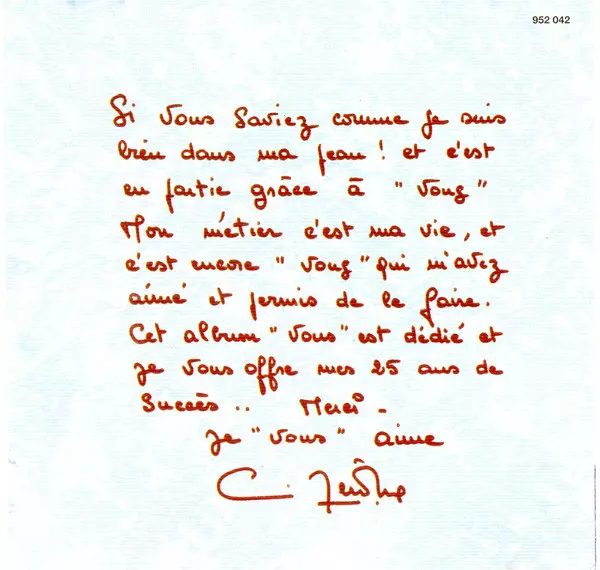 952 042
Si Vous Saviez comme je suis
bien dans ma peau ! et c'est
en partie grâce à " Vous "
Mon métier c'est ma vie, et
c'est encore " Vous " qui m'avez
aimé et permis de le faire.
Cet album " Vous " est dédié et
je vous offre mes 25 ans de
Succès .. Merci -
je " Vous " aime
C. Jérôme